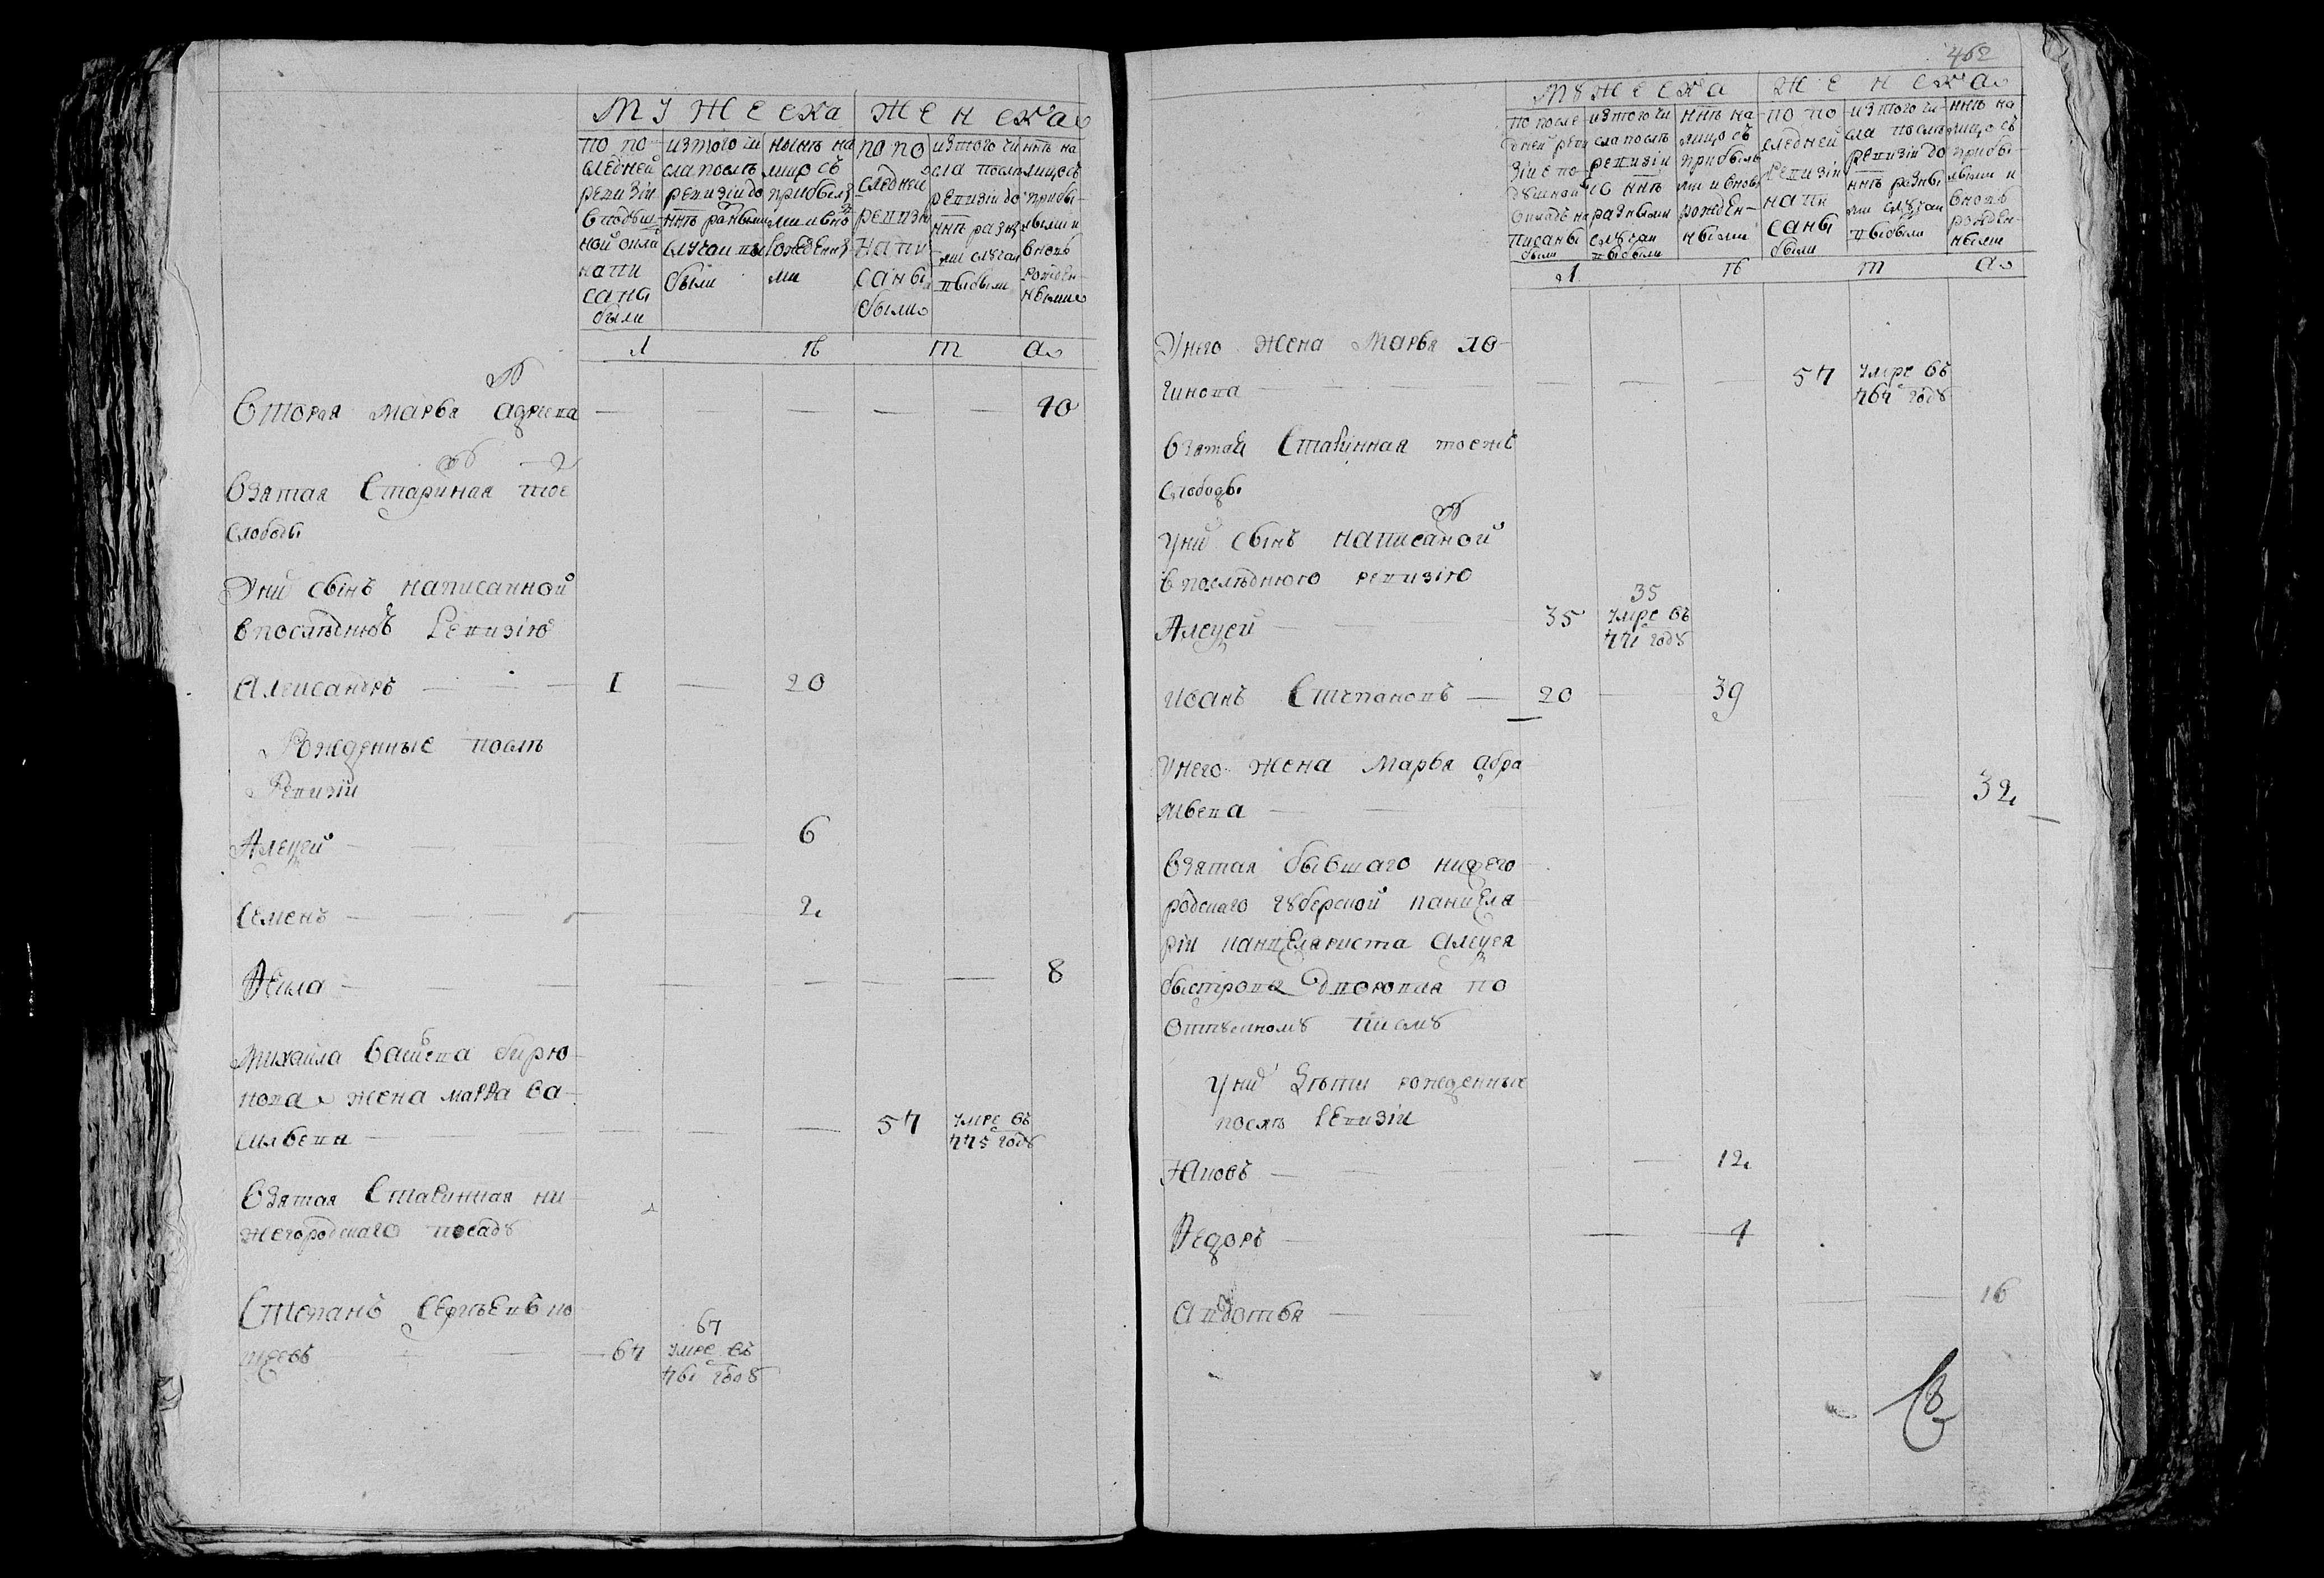 мужеска
женска
по по
следней
ревизіи
в подуш
ной окла
напи
саны
были
изтого чи
сла послѣ
ревизіи до
ннѣ разными
случаи вы
были
нынѣ на
лицо съ
прибылы
ми и вно
рожденны
ми
по по
следней
ревизіи
напи
саны
были
изтого чи
сла послѣ
ревизіи до
ннѣ разны
ми случаи
выбыли
ннѣ на
лицо съ
прибы
лыми и
вновь
рожден
ными
л ѣ т а
Вторая марья
40
взятая Старинная тое
слободы
У ни сынъ написанной
в последнюю Ревизію
Александръ 1 20
Рожденные послѣ
Ревизіи
Алеѯей 6
Семенъ 2
Фекла 8
Михаила бирю
кова жена марѳа ва
сильева 57 умре въ
775 году
взятая Старинная ни
жегородскаго посаду
Степанъ Сергѣевъ ко
64 67
умре въ
761 году
462
мужеска
женска
по после
дней реви
зіи в по
душной
окладе на
писаны
были
изтого чи
сла послѣ
ревизіи
до ннѣ
разными
случаи
выбыли
ннѣ на
лицо съ
прибылы
ми и вновь
рожден
ными
по по
следней
ревизіи
напи
саны
были
изтого чи
сла послѣ
ревизіи до
ннѣ разны
ми случаи
выбыли
ннѣ на
лицо съ
прибы
лыми и
вновь
рожден
ными
л ѣ т а
У него жена Марья ло
гинова 57 умре въ
767 году
взятая Старинная тоежъ
слободы
У ни сынъ написаной
в последнюю ревизію
Алеѯей 35 35
умре въ
771 году
Иванъ Степановъ 20 39
У него жена Марья абра
мьева 32
взятая бывшаго нижего
родскаго губерской канцеля
ріи канцеляриста алеѯея
быстрова дворовая по
отпускному писму
У ни дѣти рожденные
послѣ Ревизіи
Яковъ 12
Федоръ 4
Авдотья 16